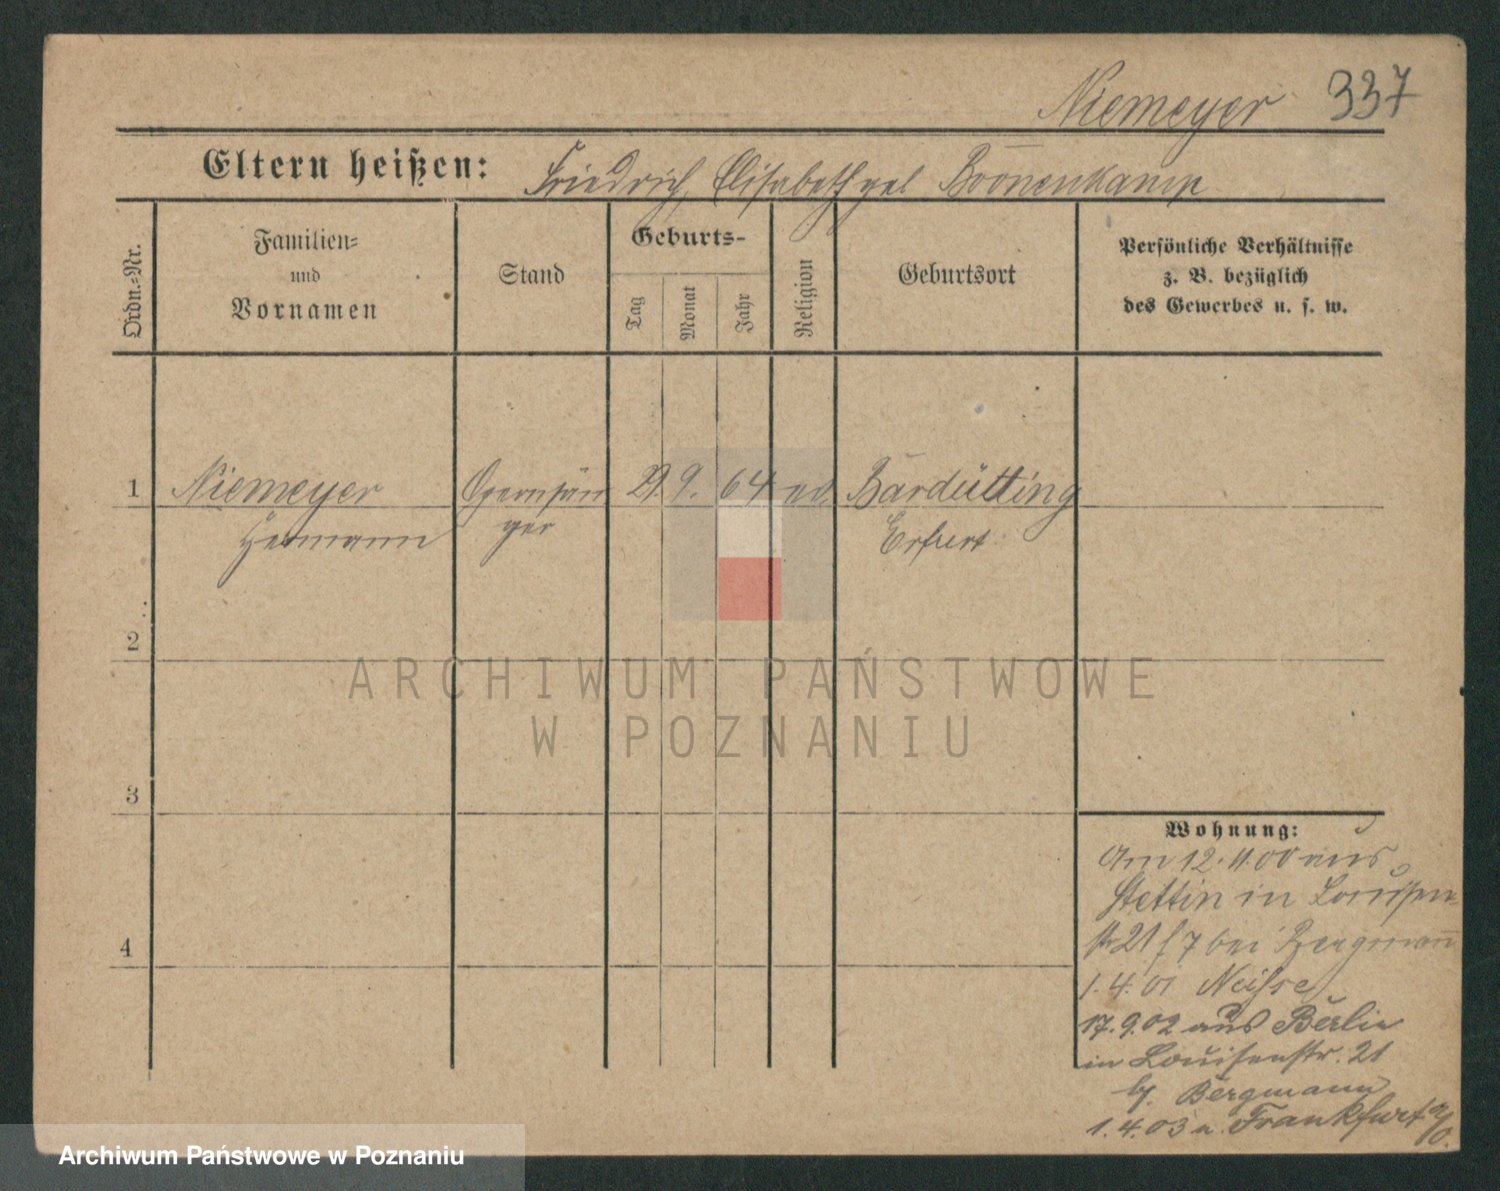 Niemeyer 337
Eltern heißen: Friedrich, Elisabeth gel Bönenkamp
Ordn.-Nr.
Familien-
und
Vornamen
Stand
Geburts-
Tag
Monat
Jahr
Religion
Geburtsort
Persönliche Verhältnisse
z. B. bezüglich
des Gewerbes u. s. w.
1 Niemeyer Opernsän 29. 9. 64 ev. Bardütting
Hermann ger Erfurt
2
3
4
ARCHIWUM PAŃSTWOWE
W POZNANIU
Wohnung:
Am 12. 11. 00 aus
Stettin in Louisen-
str 21 f 7 bei Bergmann
1. 4. 01 Neisse
17. 9. 02 aus Berlin
in Louisenstr. 21
bj. Bergmann
1. 4. 03 n. Frankfurt a/O.
Archiwum Państwowe w Poznaniu